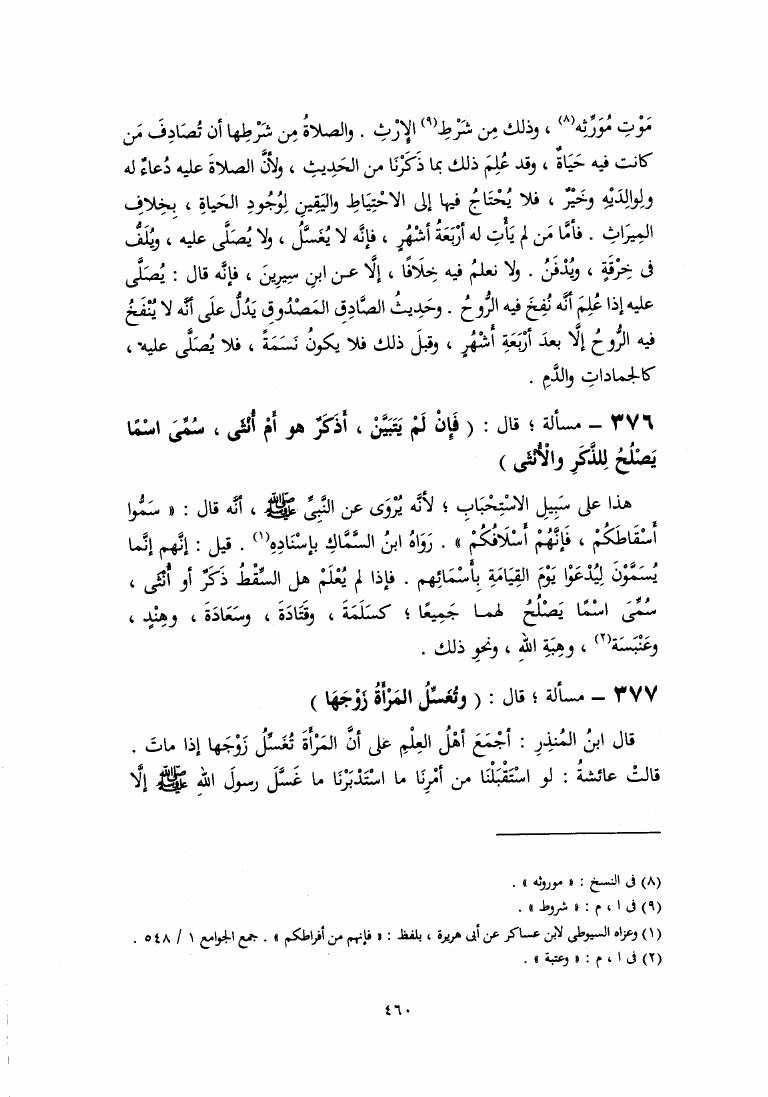 مَوْتِ مُوَرِّثِه(٨) ، وذلك مِن شَرْطِ(٩) الإِرْثِ . والصلاةُ مِن شَرْطِها أن تُصَادِفَ مَن
كانت فيه حَيَاةٌ ، وقد عُلِمَ ذلك بما ذَكَرْنَا من الحَدِيثِ ، ولأنَّ الصلاةَ عليه دُعاءٌ له
ولِوالِدَيْهِ وخَيْرٌ ، فلا يُحْتَاجُ فيها إلى الاحْتِيَاطِ واليَقِينِ لِوُجُودِ الحَياةِ ، بِخِلافِ
المِيرَاثِ . فأمَّا مَن لم يَأْتِ له أرْبَعَةُ أشْهُرٍ ، فإنَّه لا يُغَسَّلُ ، ولا يُصَلَّى عليه ، ويُلَفُّ
فى خِرْقَةٍ ، ويُدْفَنُ . ولا نعلمُ فيه خِلَافًا ، إلَّا عـن ابنِ سِيرِينَ ، فإنَّه قال : يُصَلَّى
عليه إذا عُلِمَ أنَّه نُفِخَ فيه الرُّوحُ . وحَدِيثُ الصَّادِقِ المَصْدُوقِ يَدُلُّ علَى أنَّه لا يُنْفَخُ
فيه الرُّوحُ إلَّا بعدَ أرْبَعَةِ أَشْهُرٍ ، وقبلَ ذلك فلا يكونُ نَسَمَةً ، فلا يُصَلَّى عليه ،
كالجماداتِ والدَّمِ .
٣٧٦ – مسألة ؛ قال : ( فَإِنْ لَمْ يَتَبَيَّنْ ، أَذَكَرٌ هو أمْ أُنْثَى ، سُمِّىَ اسْمًا
يَصْلُحُ لِلذَّكَرِ والْأُنْثَى )
هذا على سَبِيلِ الاسْتِحْبَابِ ؛ لأنَّه يُرْوَى عن النَّبِىِّ ﷺ ، أنَّه قال : « سَمُّوا
أسْقَاطَكُمْ ، فَإنَّهُمْ أسْلَافُكُمْ » . رَوَاهُ ابنُ السَّمَّاكِ بإسْنَادِهِ(١) . قيل : إنَّهم إنَّما
يُسَمَّوْنَ لِيُدْعَوْا يَوْمَ القِيَامَةِ بِأَسْمَائِهم . فإذا لم يُعْلَمْ هل السِّقْطُ ذَكَرٌ أو أُنْثَى ،
سُمِّىَ اسْمًا يَصْلُحُ لهمـا جَمِيعًا ؛ كسَلَمَةَ ، وقَتَادَةَ ، وسَعَادَةَ ، وهِنْدٍ ،
وعَنْبَسَة(٢) ، وهِبَةِ اللهِ ، ونحوِ ذلك .
٣٧٧ – مسألة ؛ قال : ( وتُغَسِّلُ المَرْأَةُ زَوْجَهَا )
قال ابنُ المُنذِرِ : أجْمَعَ أهْلُ العِلْمِ على أنَّ المَرْأةَ تُغَسِّلُ زَوْجَها إذا ماتَ .
قالتْ عائشةُ : لو اسْتَقْبَلْنَا من أمْرِنَا ما اسْتَدْبَرْنَا ما غَسَّلَ رسولَ اللهِ ﷺ إلَّا
(٨) فى النسخ : « موروثه » .
(٩) فى ا ، م : « شروط » .
(١) وعزاه السيوطى لابن عساكر عن أبى هريرة ، بلفظ : « فإنهم من أفراطكم » . جمع الجوامع ١ / ٥٤٨ .
(٢) فى ا ، م : « وعتبة » .
٤٦٠